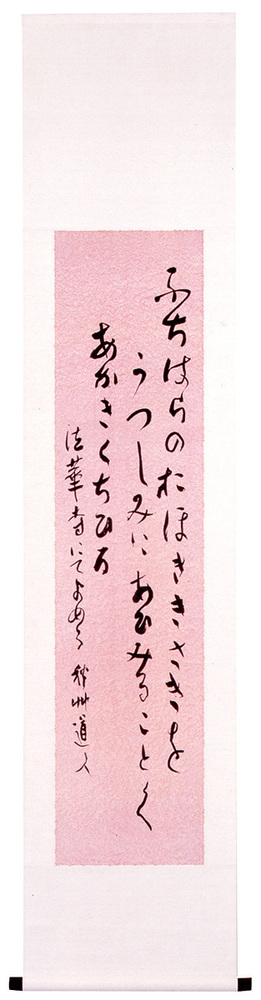 ふちはらのおほききさきを
うつしみにあひみることく
あかきくちひる
法華寺にてよめる 秋艸道人